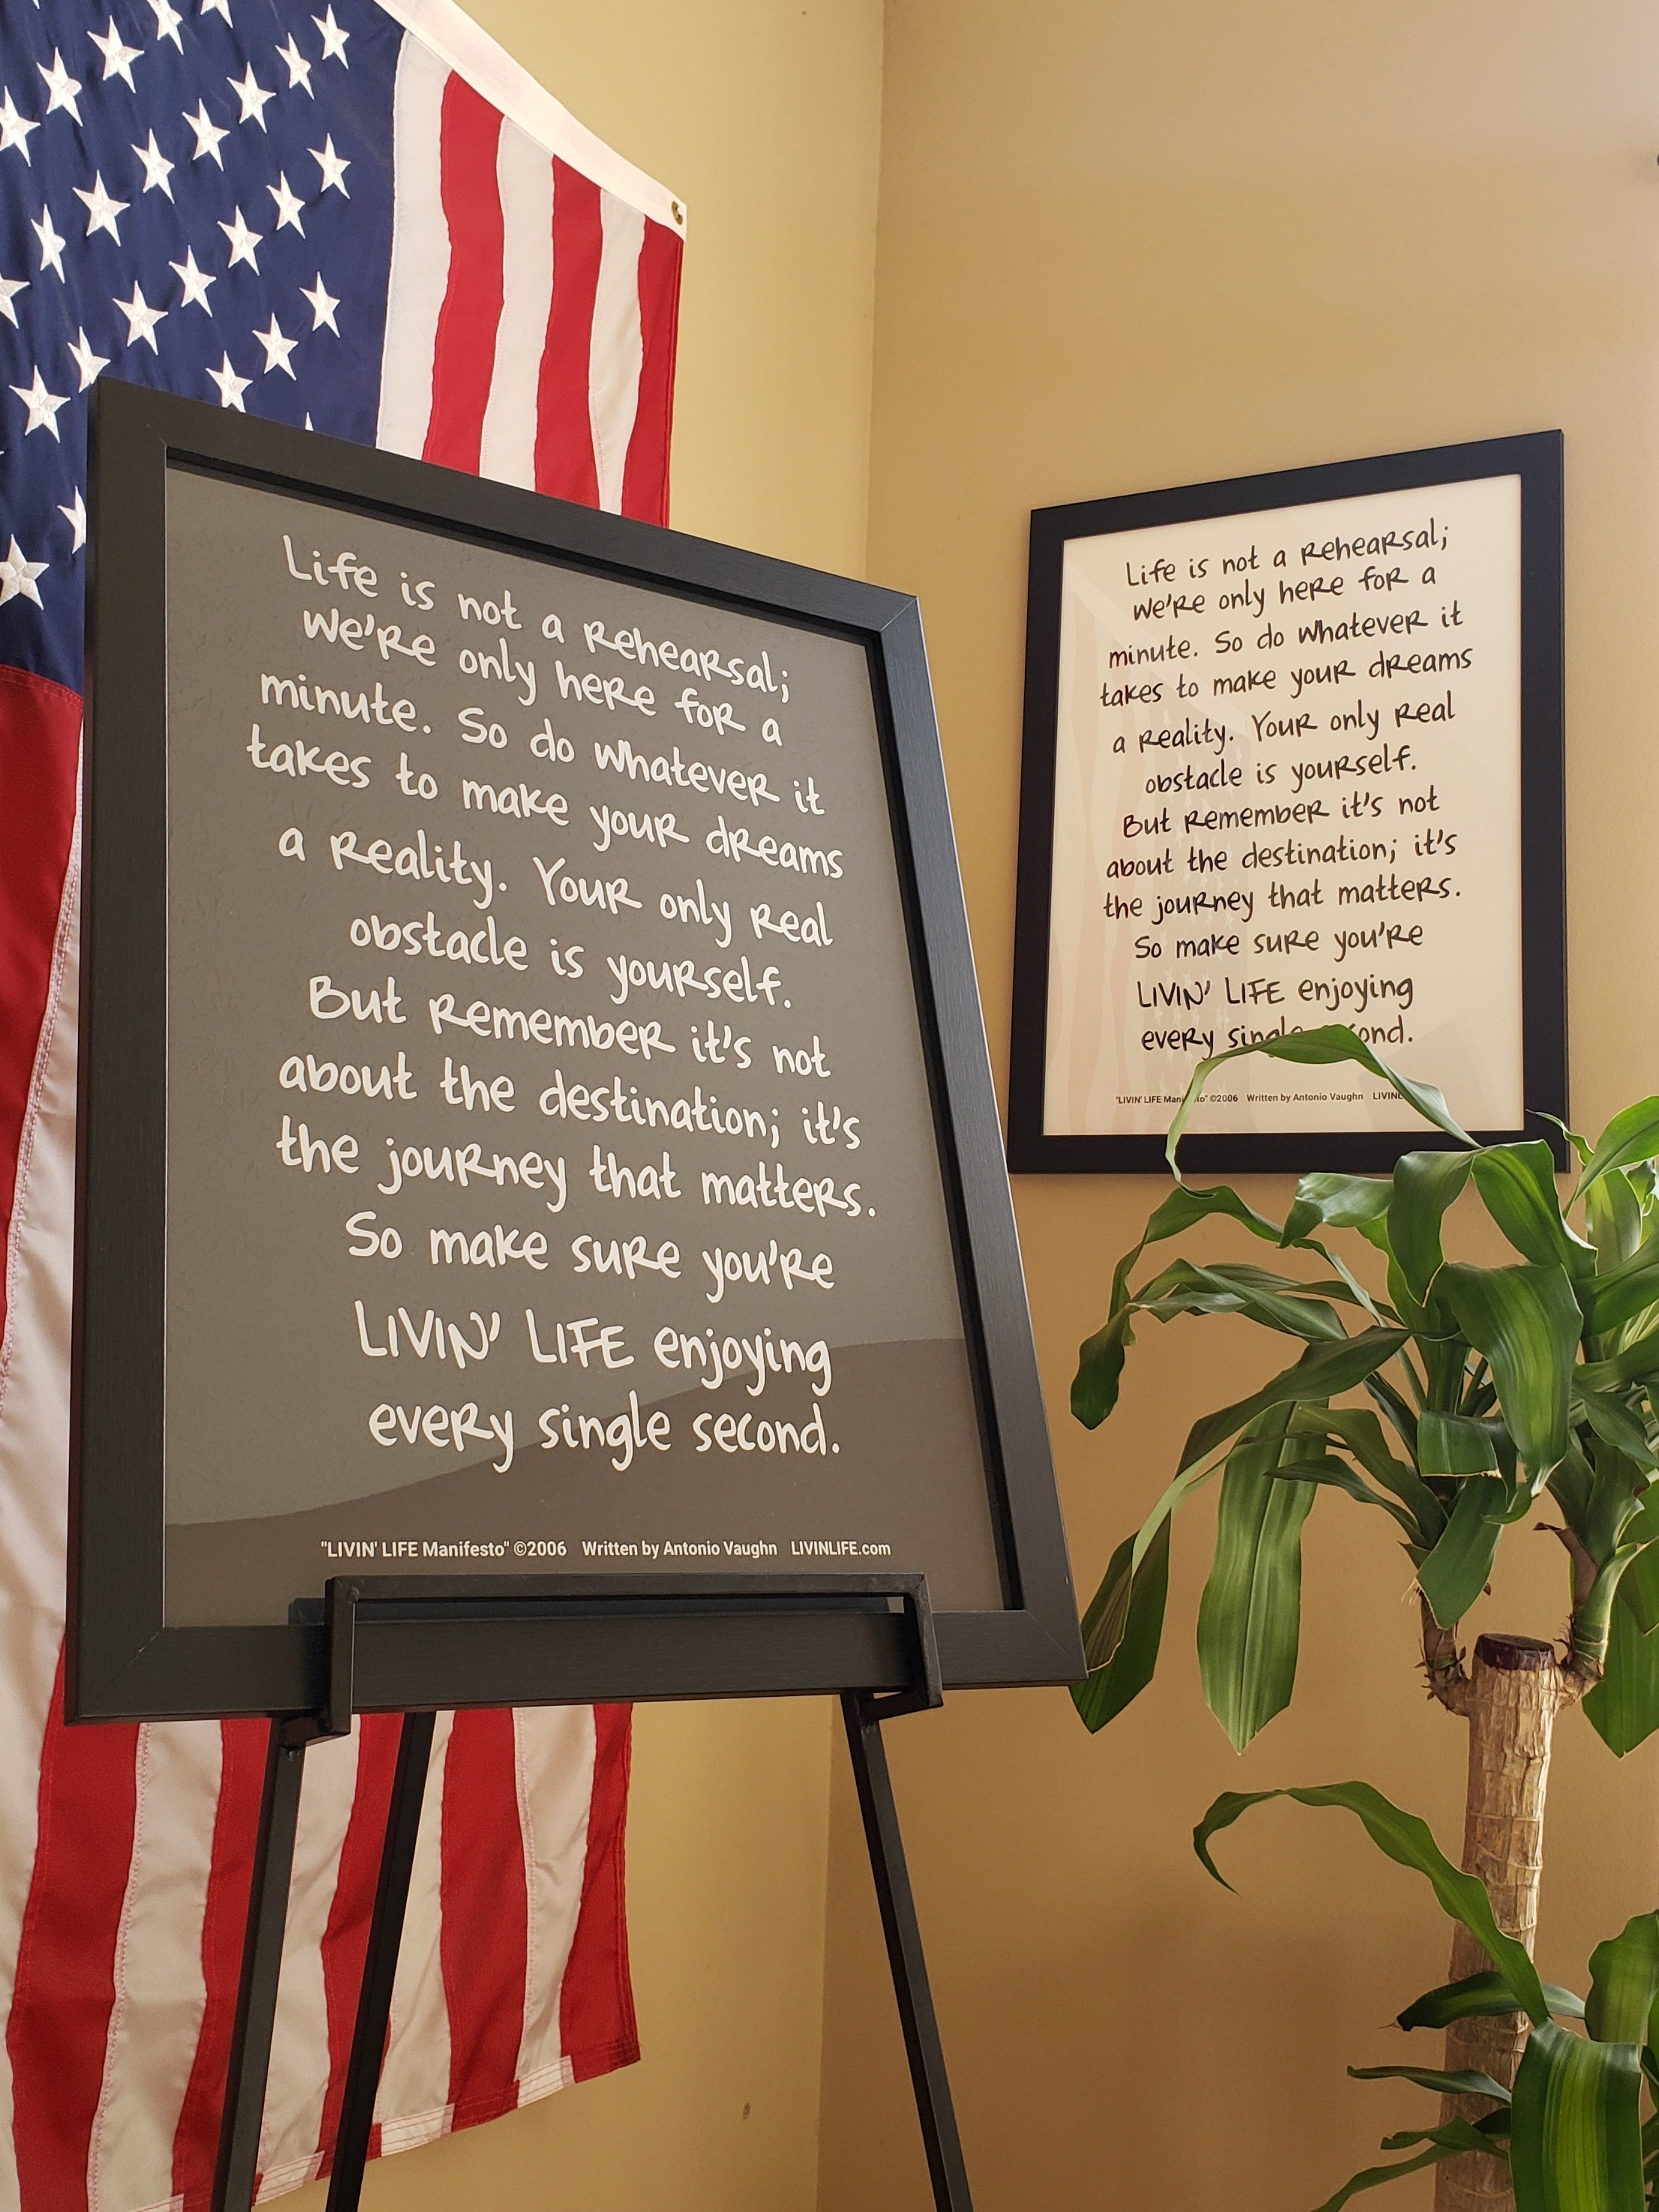 Life is not a rehearsal;
we're only here for a
minute. So do whatever it
takes to make your dreams
a reality. Your only real
obstacle is yourself.
But remember it's not
about the destination; it's
the journey that matters.
So make sure you're
LIVIN' LIFE enjoying
every single second.
"LIVIN' LIFE Manifesto" ©2006 Written by Antonio Vaughn LIVINLIFE.com
Life is not a rehearsal;
we're only here for a
minute. So do whatever it
takes to make your dreams
a reality. Your only real
obstacle is yourself.
But remember it's not
about the destination; it's
the journey that matters.
So make sure you're
LIVIN' LIFE enjoying
every single second.
"LIVIN' LIFE Manifesto" ©2006 Written by Antonio Vaughn